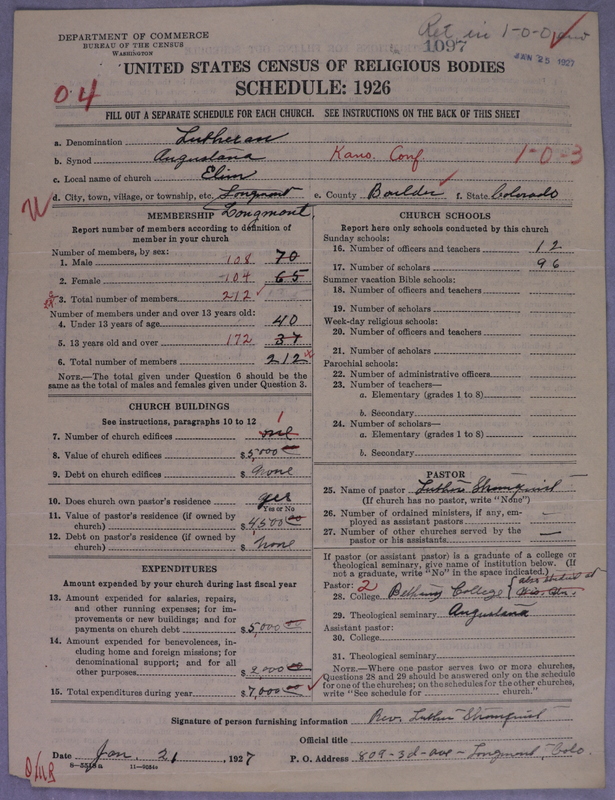 Ret in 1-0-0
DEPARTMENT OF COMMERCE
BUREAU OF THE CENSUS
WASHINGTON
1097
JAN 25 1927
UNITED STATES CENSUS OF RELIGIOUS BODIES
SCHEDULE: 1926
04
FILL OUT A SEPARATE SCHEDULE FOR EACH CHURCH. SEE INSTRUCTIONS ON THE BACK OF THIS SHEET
a. Denomination Lutheran
b. Synod Augustana Kans. Conf. 1-0-3
c. Local name of church Elim
d. City, town, village, or township, etc. Longmont e. County Boulder f. State Colorado
Longmont
MEMBERSHIP
Report number of members according to definition of
member in your church
Number of members, by sex:
1. Male 108 70
2. Female 104 65
3. Total number of members 212
Number of members under and over 13 years old:
4. Under 13 years of age 40
5. 13 years old and over 172 37
6. Total number of members 212
NOTE.—The total given under Question 6 should be
the same as the total of males and females given under Question 3.
CHURCH BUILDINGS
See instructions, paragraphs 10 to 12
1
7. Number of church edifices one
8. Value of church edifices $5,000 00
9. Debt on church edifices $ None
10. Does church own pastor's residence yes
Yes or No
11. Value of pastor's residence (if owned by
church) $4500 00
12. Debt on pastor's residence (if owned by
church) $ None
EXPENDITURES
Amount expended by your church during last fiscal year
13. Amount expended for salaries, repairs,
and other running expenses; for im-
provements or new buildings; and for
payments on church debt $5,000 00
14. Amount expended for benevolences, in-
cluding home and foreign missions; for
denominational support; and for all
other purposes $2,000 00
15. Total expenditures during year $7,000 00
CHURCH SCHOOLS
Report here only schools conducted by this church
Sunday schools:
16. Number of officers and teachers 12
17. Number of scholars 96
Summer vacation Bible schools:
18. Number of officers and teachers
19. Number of scholars
Week-day religious schools:
20. Number of officers and teachers
21. Number of scholars
Parochial schools:
22. Number of administrative officers
23. Number of teachers—
a. Elementary (grades 1 to 8)
b. Secondary
24. Number of scholars—
a. Elementary (grades 1 to 8)
b. Secondary
PASTOR
25. Name of pastor Luther Stromquist
(If church has no pastor, write "None")
26. Number of ordained ministers, if any, em-
ployed as assistant pastors —
27. Number of other churches served by the
pastor or his assistants —
If pastor (or assistant pastor) is a graduate of a college or
theological seminary, give name of institution below. (If
not a graduate, write "No" in the space indicated.)
Pastor: 2 also studied at
28. College Bethany College
29. Theological seminary Augustana
Assistant pastor:
30. College
31. Theological seminary
NOTE.—Where one pastor serves two or more churches,
Questions 28 and 29 should be answered only on the schedule
for one of the churches; on the schedules for the other churches,
write "See schedule for church."
Signature of person furnishing information Rev. Luther Stromquist
Official title
Date Jan. 21, 1927 P. O. Address 809-3d-ave - Longmont, Colo.
8-5518a 11-9564a